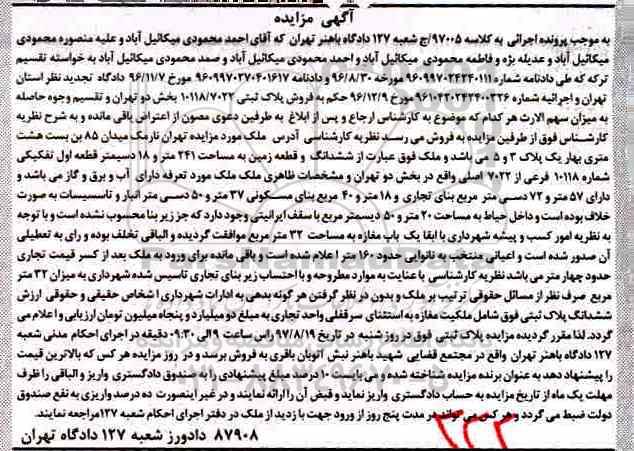 آگهی مزایده
به موجب پرونده اجرائی به کلاسه ۹۷۰۰۵/ج شعبه ۱۲۷ دادگاه باهنر تهران که آقای احمد محمودی میکائیل آباد و علیه منصوره محمودی
میکائیل آباد و عدیله بژه و فاطمه محمودی میکائیل آباد و احمد محمودی میکائیل آباد و صمد محمودی میکائیل آباد به خواسته تقسیم
ترکه که طی دادنامه شماره ۹۶۰۹۹۷۰۲۴۲۴۰۱۱۱ مورخه ۹۶/۸/۳۰ و دادنامه ۹۶۰۹۹۷۰۲۷۰۴۰۱۶۱۷ مورخ ۹۶/۱۱/۷ دادگاه تجدید نظر استان
تهران و اجرائیه شماره ۹۶۱۰۴۲۰۲۴۲۴۰۰۳۲۶ مورخ ۹۶/۱۲/۹ حکم به فروش پلاک ثبتی ۱۰۱۱۸/۷۰۲۲ بخش دو تهران و تقسیم وجوه حاصله
به میزان سهم الارث هر کدام که موضوع به کارشناس ارجاع و پس از ابلاغ به طرفین دعوی مصون از اعتراض باقی مانده و به شرح نظریه
کارشناس فوق از طرفین مزایده به فروش می رسد نظریه کارشناسی آدرس ملک مورد مزایده تهران نارمک میدان ۸۵ بن بست هشت
متری بهار یک پلاک ۳ و ۵ می باشد و ملک فوق عبارت از ششدانگ و قطعه زمین به مساحت ۲۴۱ متر و ۱۸ دسیمتر قطعه اول تفکیکی
شماره ۱۰۱۱۸ فرعی از ۷۰۲۲ اصلی واقع در بخش دو تهران و مشخصات ظاهری ملک ملک مورد تعرفه دارای آب و برق و گاز می باشد و
دارای ۵۷ متر و ۷۲ دسی متر مربع بنای تجاری و ۱۸ متر و ۴۰ مربع بنای مسکونی ۳۷ متر و ۵۰ دسی متر انبار و تاسیسات به صورت
خلاف بوده است و داخل حیاط به مساحت ۲۰ متر و ۵۰ دیسمتر مربع با سقف ایرانیتی وجود دارد که جز زیر بنا محسوب نشده است و با توجه
به نظریه امور کسب و پیشه شهرداری با ابقا یک باب مغازه به مساحت ۳۲ متر مربع موافقت گردیده و الباقی تخلف بوده و رای به تعطیلی
آن صدور شده است و اعیانی منتخب به نانوایی حدود ۱۶۰ متر اعلام شده است و باقی مانده برای ورود به ملک بعد از کسر قیمت تجاری
حدود چهار متر می باشد نظریه کارشناسی با عنایت به موارد مطروحه و با احتساب زیر بنای تجاری تاسیس شده شهرداری به میزان ۳۲ متر
مربع صرف نظر از مسائل حقوقی ترتیب بر ملک و بدون در نظر گرفتن هر گونه بدهی به ادارات شهرداری اشخاص حقیقی و حقوقی ارزش
ششدانگ پلاک ثبتی فوق شامل ملکیت مغازه به استثنای سرقفلی واحد تجاری به مبلغ دو میلیارد و پنجاه میلیون تومان ارزیابی و اعلام می
گردد. لذا مقرر گردیده مزایده پلاک ثبتی فوق در روز شنبه در تاریخ ۹۷/۸/۱۹ راس ساعت ۹ الی ۰۹:۳۰ دقیقه در اجرای احکام مدنی شعبه
۱۲۷ دادگاه باهنر تهران واقع در مجتمع قضایی شهید باهنر نبش اتوبان باقری به فروش برسد و در روز مزایده هر کس که بالاترین قیمت
را پیشنهاد دهد به عنوان برنده مزایده شناخته شده و می بایست ۱۰ درصد مبلغ پیشنهادی را به صندوق دادگستری واریز و الباقی را ظرف
مهلت یک ماه از تاریخ مزایده به حساب دادگستری واریز نماید و قبض آن را ارائه نمایند و در غیر اینصورت ده درصد واریزی به نفع صندوق
دولت ضبط می گردد و هر کس می تواند در مدت پنج روز از ورود جهت بازدید از ملک در دفتر اجرای احکام شعبه ۱۲۷ مراجعه نمایند.
۸۷۹۰۸ دادورز شعبه ۱۲۷ دادگاه تهران